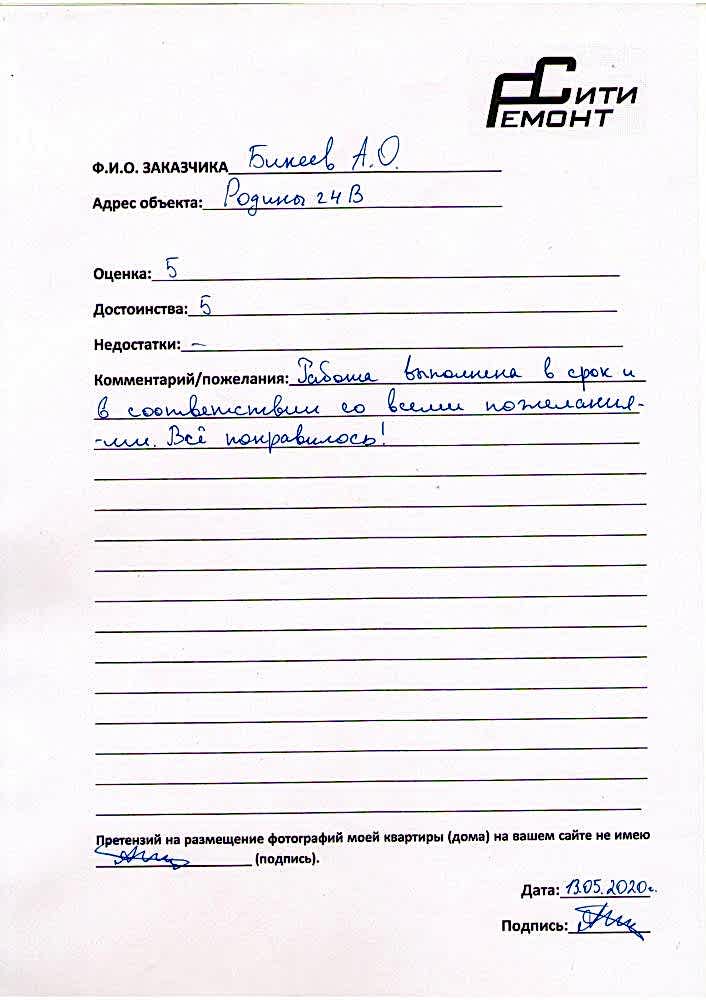 СИТИ
РЕМОНТ
Ф.И.О. ЗАКАЗЧИКА Бикеев А.О.
Адрес объекта: Родины 24В
Оценка: 5
Достоинства: 5
Недостатки: –
Комментарий/пожелания: Работа выполнена в срок и
в соответствии со всеми пожелания-
-ми. Всё понравилось!
Претензий на размещение фотографий моей квартиры (дома) на вашем сайте не имею
(подпись).
Дата: 13.05.2020г.
Подпись: